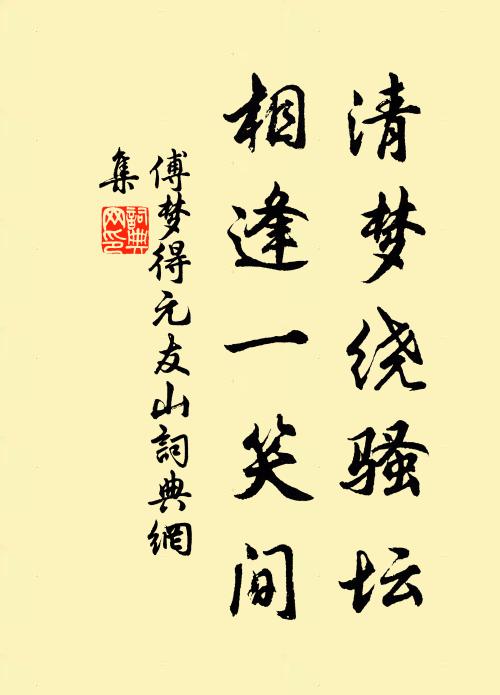 清梦绕骚坛
相逢一笑间
傅梦得元友山詞典網
集
詞典
网印